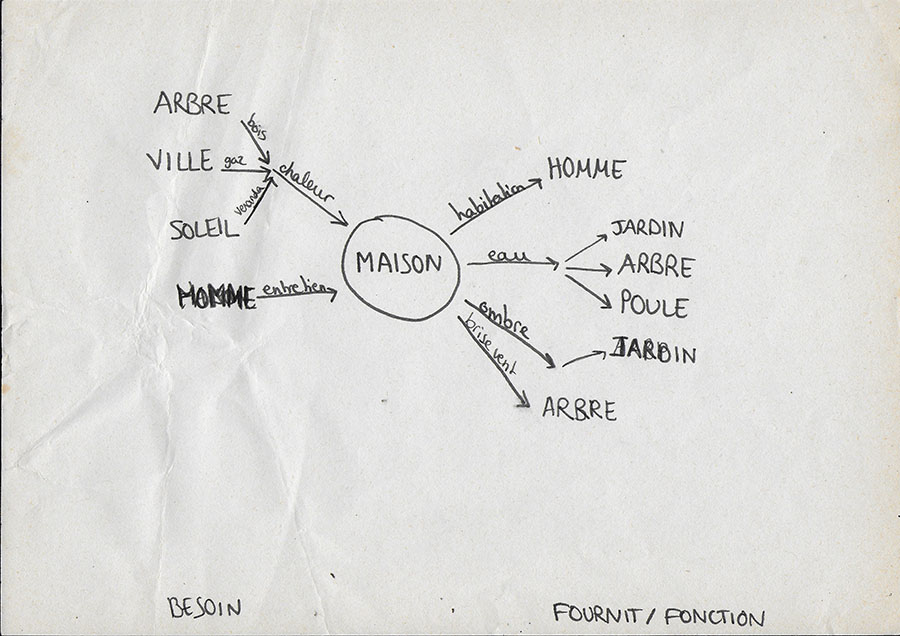 ARBRE
bois
VILLE gaz
chaleur
veranda
SOLEIL
HOMME entretien
MAISON
habitation HOMME
eau
JARDIN
ARBRE
POULE
ombre
JARDIN
brise vent
ARBRE
BESOIN
FOURNIT / FONCTION